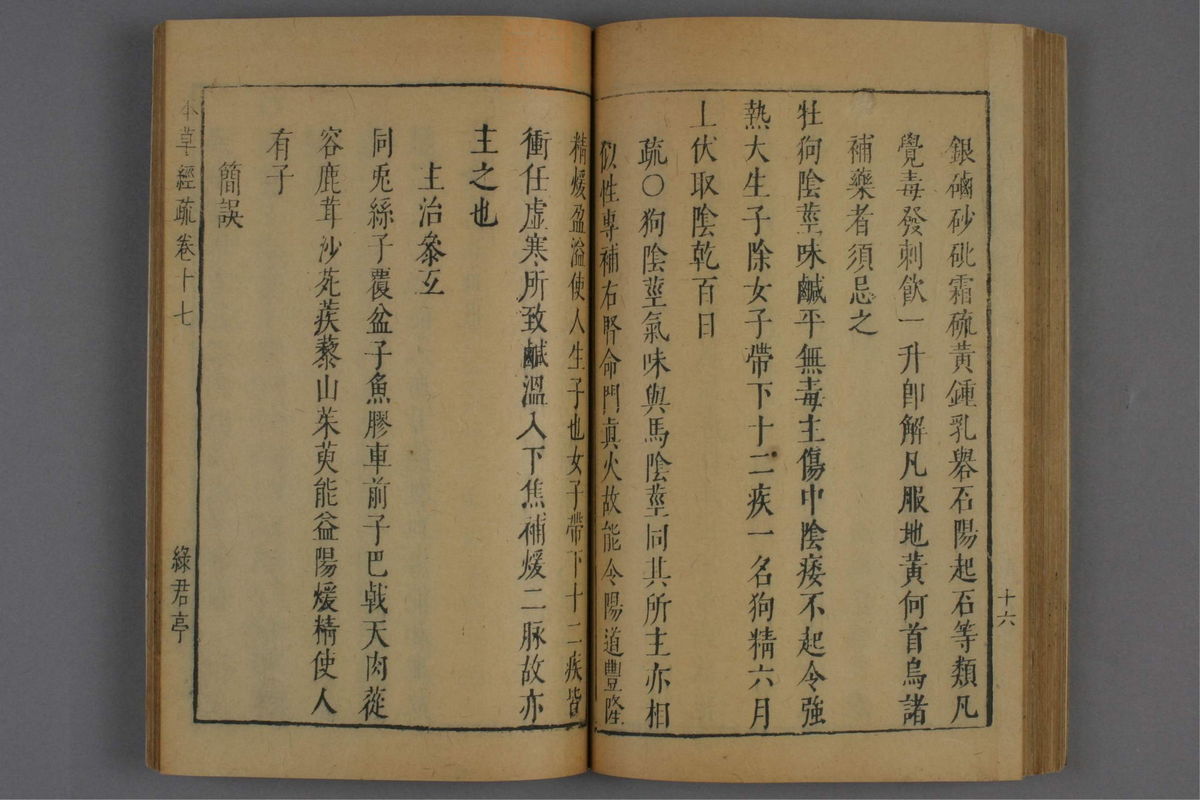 十六
銀硇砂砒霜硫黃鍾乳礜石陽起石等類凡
覺毒發刺飲一升卽解凡服地黃何首烏諸
補藥者須忌之
牡狗陰莖味鹹平無毒主傷中陰痿不起令強
熱大生子除女子帶下十二疾一名狗精六月
上伏取陰乾百日
疏〇狗陰莖氣味與馬陰莖同其所主亦相
似性專補右腎命門眞火故能令陽道豐隆
精煖盈溢使人生子也女子帶下十二疾皆
衝任虛寒所致鹹溫入下焦補煖二脉故亦
主之也
主治參互
同兎絲子覆盆子魚膠車前子巴戟天肉蓯
容鹿茸沙苑蒺藜山茱萸能益陽煖精使人
有子
簡誤
本草經疏卷十七
綠君亭